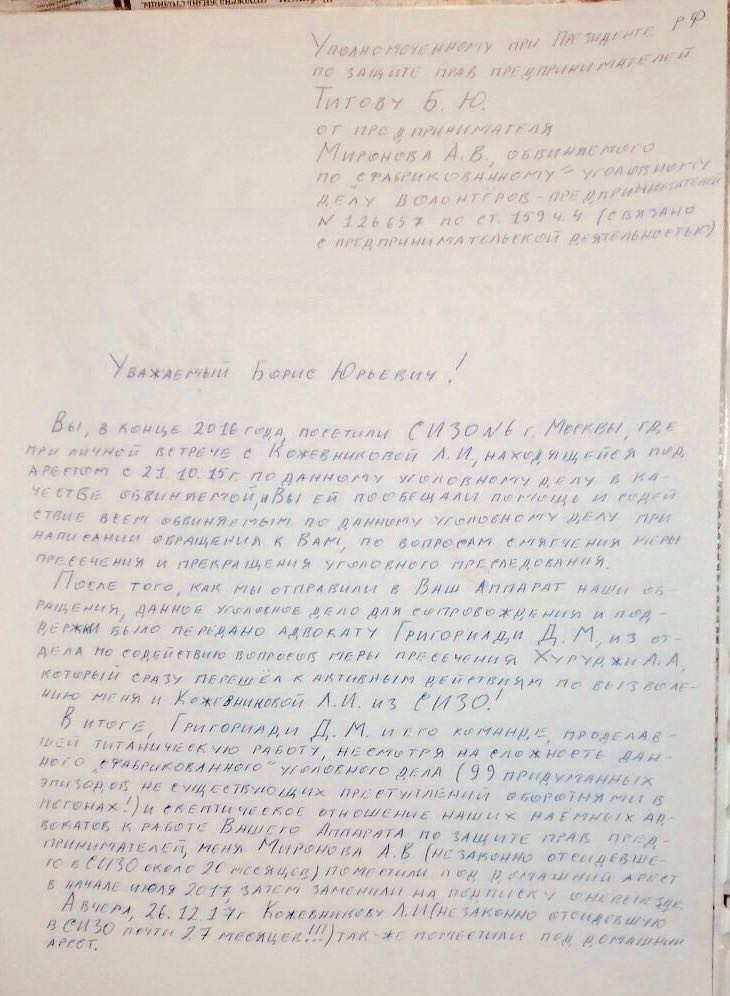 Уполномоченному при Президенте РФ
по защите прав предпринимателей
Титову Б. Ю.
от предпринимателя
Миронова А.В., обвиняемого
по "сфабрикованному" уголовному
делу волонтёров-предпринимателей
N 126657 по ст. 159 ч.4 (связано
с предпринимательской деятельностью)
Уважаемый Борис Юрьевич!
Вы, в конце 2016 года, посетили СИЗО №6 г. Москвы, где
при личной встрече с Кожевниковой Л.И., находящейся под
арестом с 21.10.15г. по данному уголовному делу в ка-
честве обвиняемой, Вы ей пообещали помощь и содей
ствие всем обвиняемым по данному уголовному делу при
написании обращения к Вам, по вопросам смягчения меры
пресечения и прекращения уголовного преследования.
После того, как мы отправили в Ваш Аппарат наши об-
ращения, данное уголовное дело для сопровождения и под-
держки было передано адвокату Григориади Д.М, из от-
дела по содействию вопросов меры пресечения Хуруджи А.А,
который сразу перешёл к активным действиям по вызволе-
нию меня и Кожевниковой Л.И. из СИЗО!
В итоге, Григориади Д.М. и его команде, проделав-
шей титаническую работу, несмотря на сложность дан-
ного "сфабрикованного" уголовного дела (99 придуманных
эпизодов не существующих преступлений оборотнями в
погонах!) и скептическое отношение наших наёмных ад-
вокатов к работе Вашего Аппарата по защите прав пред-
принимателей, меня Миронова А.В (незаконно отсидевше-
го в СИЗО около 20 месяцев) поместили под домашний арест
в начале июля 2017, затем заменили на подписку о невыезде.
А вчера, 26.12.17г Кожевникову Л.И (незаконно отсидевшую
в СИЗО почти 27 месяцев!!!) так-же поместили под домашний
арест.